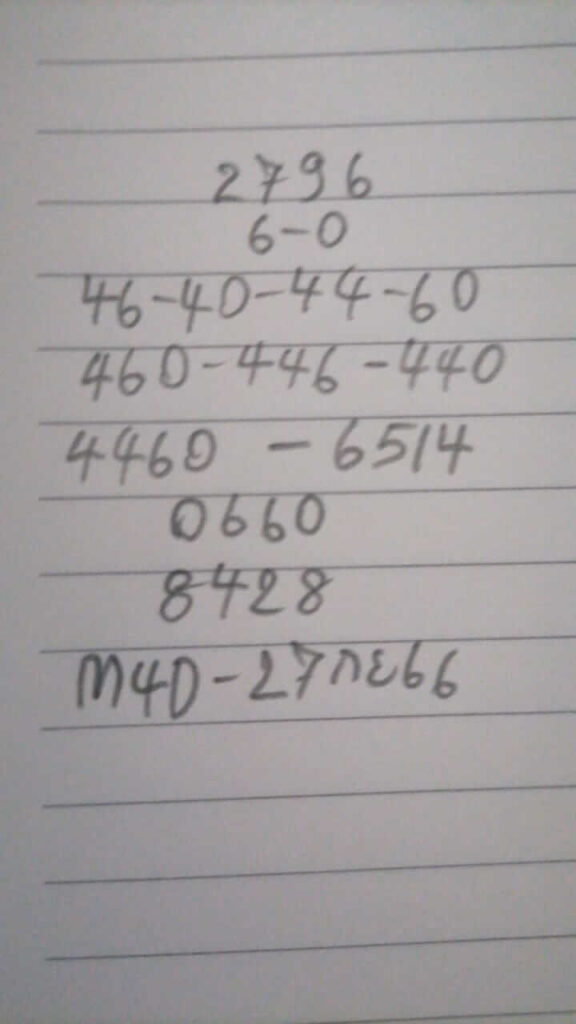 2796
6-0
46-40-44-60
460-446-440
4460 - 6514
0660
8428